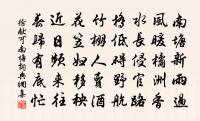 南塘新雨過
風暖橘洲香
水長侵官路
橋低礙野航
竹棚人賣酒
花笠婦移秧
近日頻來往
暮歸有底忙
徐獻可南塘詞典網集